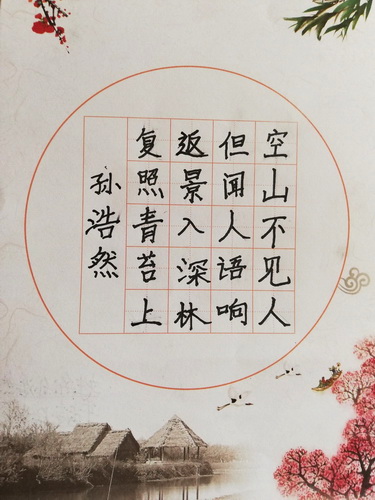 空山不见人
但闻人语响
返景入深林
复照青苔上
孙浩然